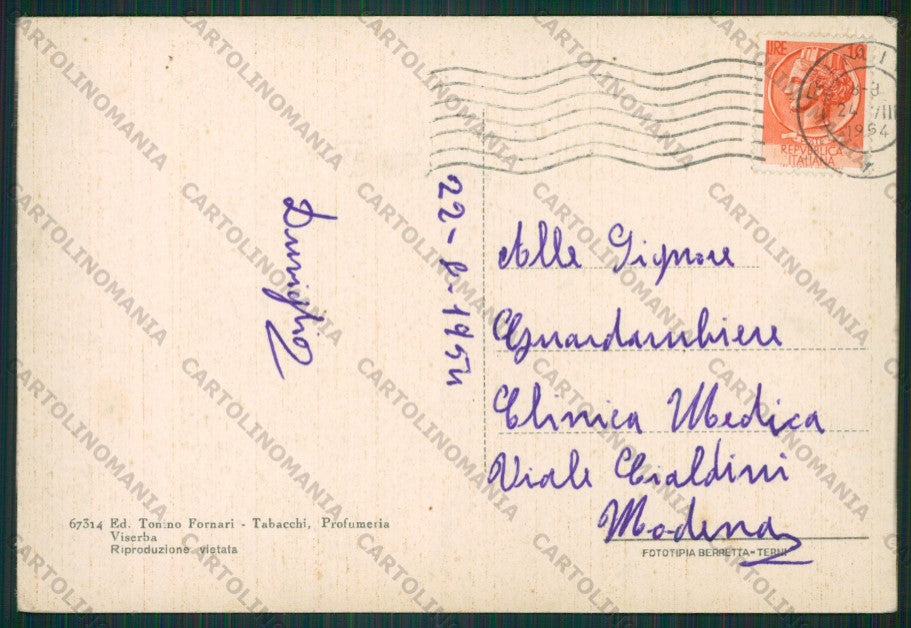 LIRE 10
8-9
24 VIII
1954
REPVBBLICA
ITALIANA
22-8-1954
Alle Signore
Guardarobiere
Clinica Medica
Viale Cialdini
Modena
67314 Ed. Tonino Fornari - Tabacchi, Profumeria
Viserba
Riproduzione vietata
FOTOTIPIA BERRETTA-TERNI
CARTOLINOMANIA